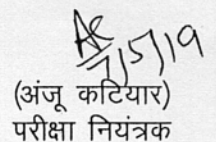 7/5/19
(अंजू कटियार)
परीक्षा नियंत्रक